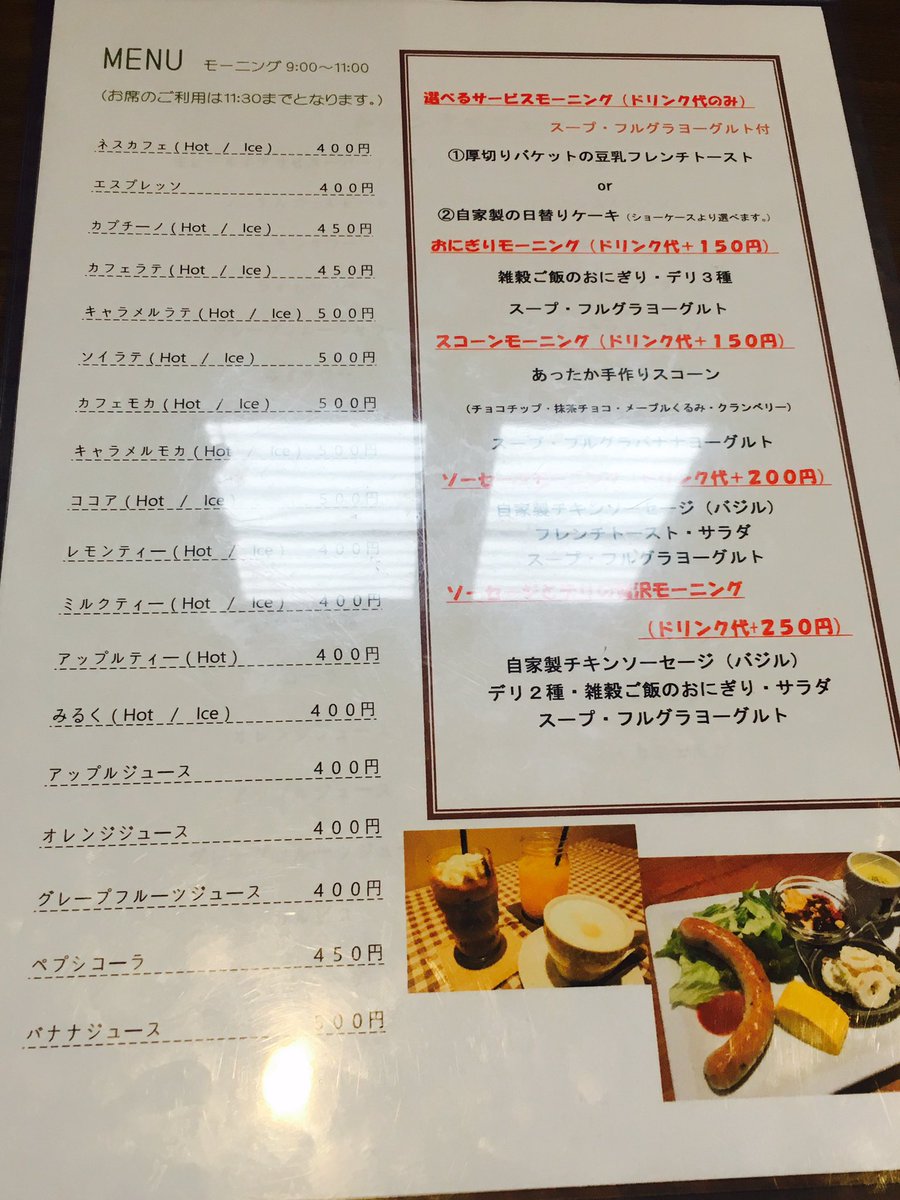 MENU モーニング 9:00～11:00
(お席のご利用は11:30までとなります。)
ネスカフェ(Hot / Ice) 400円
エスプレッソ 400円
カプチーノ(Hot / Ice) 450円
カフェラテ(Hot / Ice) 450円
キャラメルラテ(Hot / Ice) 500円
ソイラテ(Hot / Ice) 500円
カフェモカ(Hot / Ice) 500円
キャラメルモカ(Hot / Ice) 500円
ココア(Hot / Ice) 500円
レモンティー(Hot / Ice) 400円
ミルクティー(Hot / Ice) 400円
アップルティー(Hot) 400円
みるく(Hot / Ice) 400円
アップルジュース 400円
オレンジジュース 400円
グレープフルーツジュース 400円
ペプシコーラ 450円
バナナジュース 500円
選べるサービスモーニング(ドリンク代のみ)
スープ・フルグラヨーグルト付
①厚切りバケットの豆乳フレンチトースト
or
②自家製の日替りケーキ(ショーケースより選べます。)
おにぎりモーニング(ドリンク代+150円)
雑穀ご飯のおにぎり・デリ3種
スープ・フルグラヨーグルト
スコーンモーニング(ドリンク代+150円)
あったか手作りスコーン
(チョコチップ・抹茶チョコ・メープルくるみ・クランベリー)
スープ・フルグラバナナヨーグルト
ソーセージモーニング(ドリンク代+200円)
自家製チキンソーセージ(バジル)
フレンチトースト・サラダ
スープ・フルグラヨーグルト
ソーセージとデリの贅沢モーニング
(ドリンク代+250円)
自家製チキンソーセージ(バジル)
デリ2種・雑穀ご飯のおにぎり・サラダ
スープ・フルグラヨーグルト